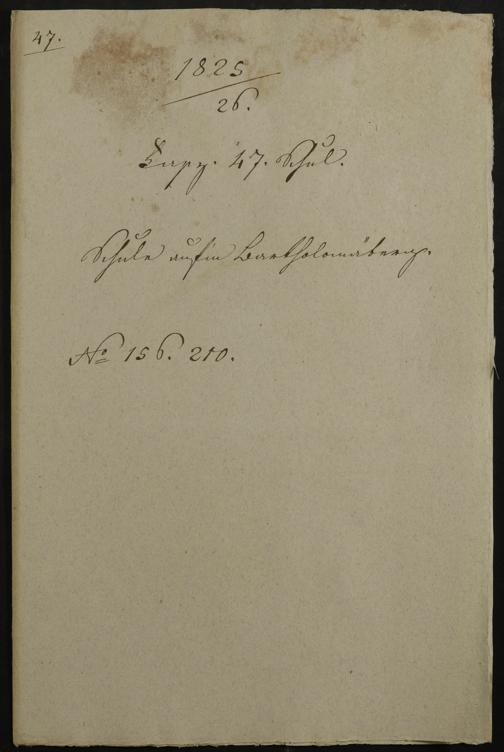 47.
1825
26.
Fasz. 47. Schul.
Schule auf'm Bartholomäberg.
No 156. 210.